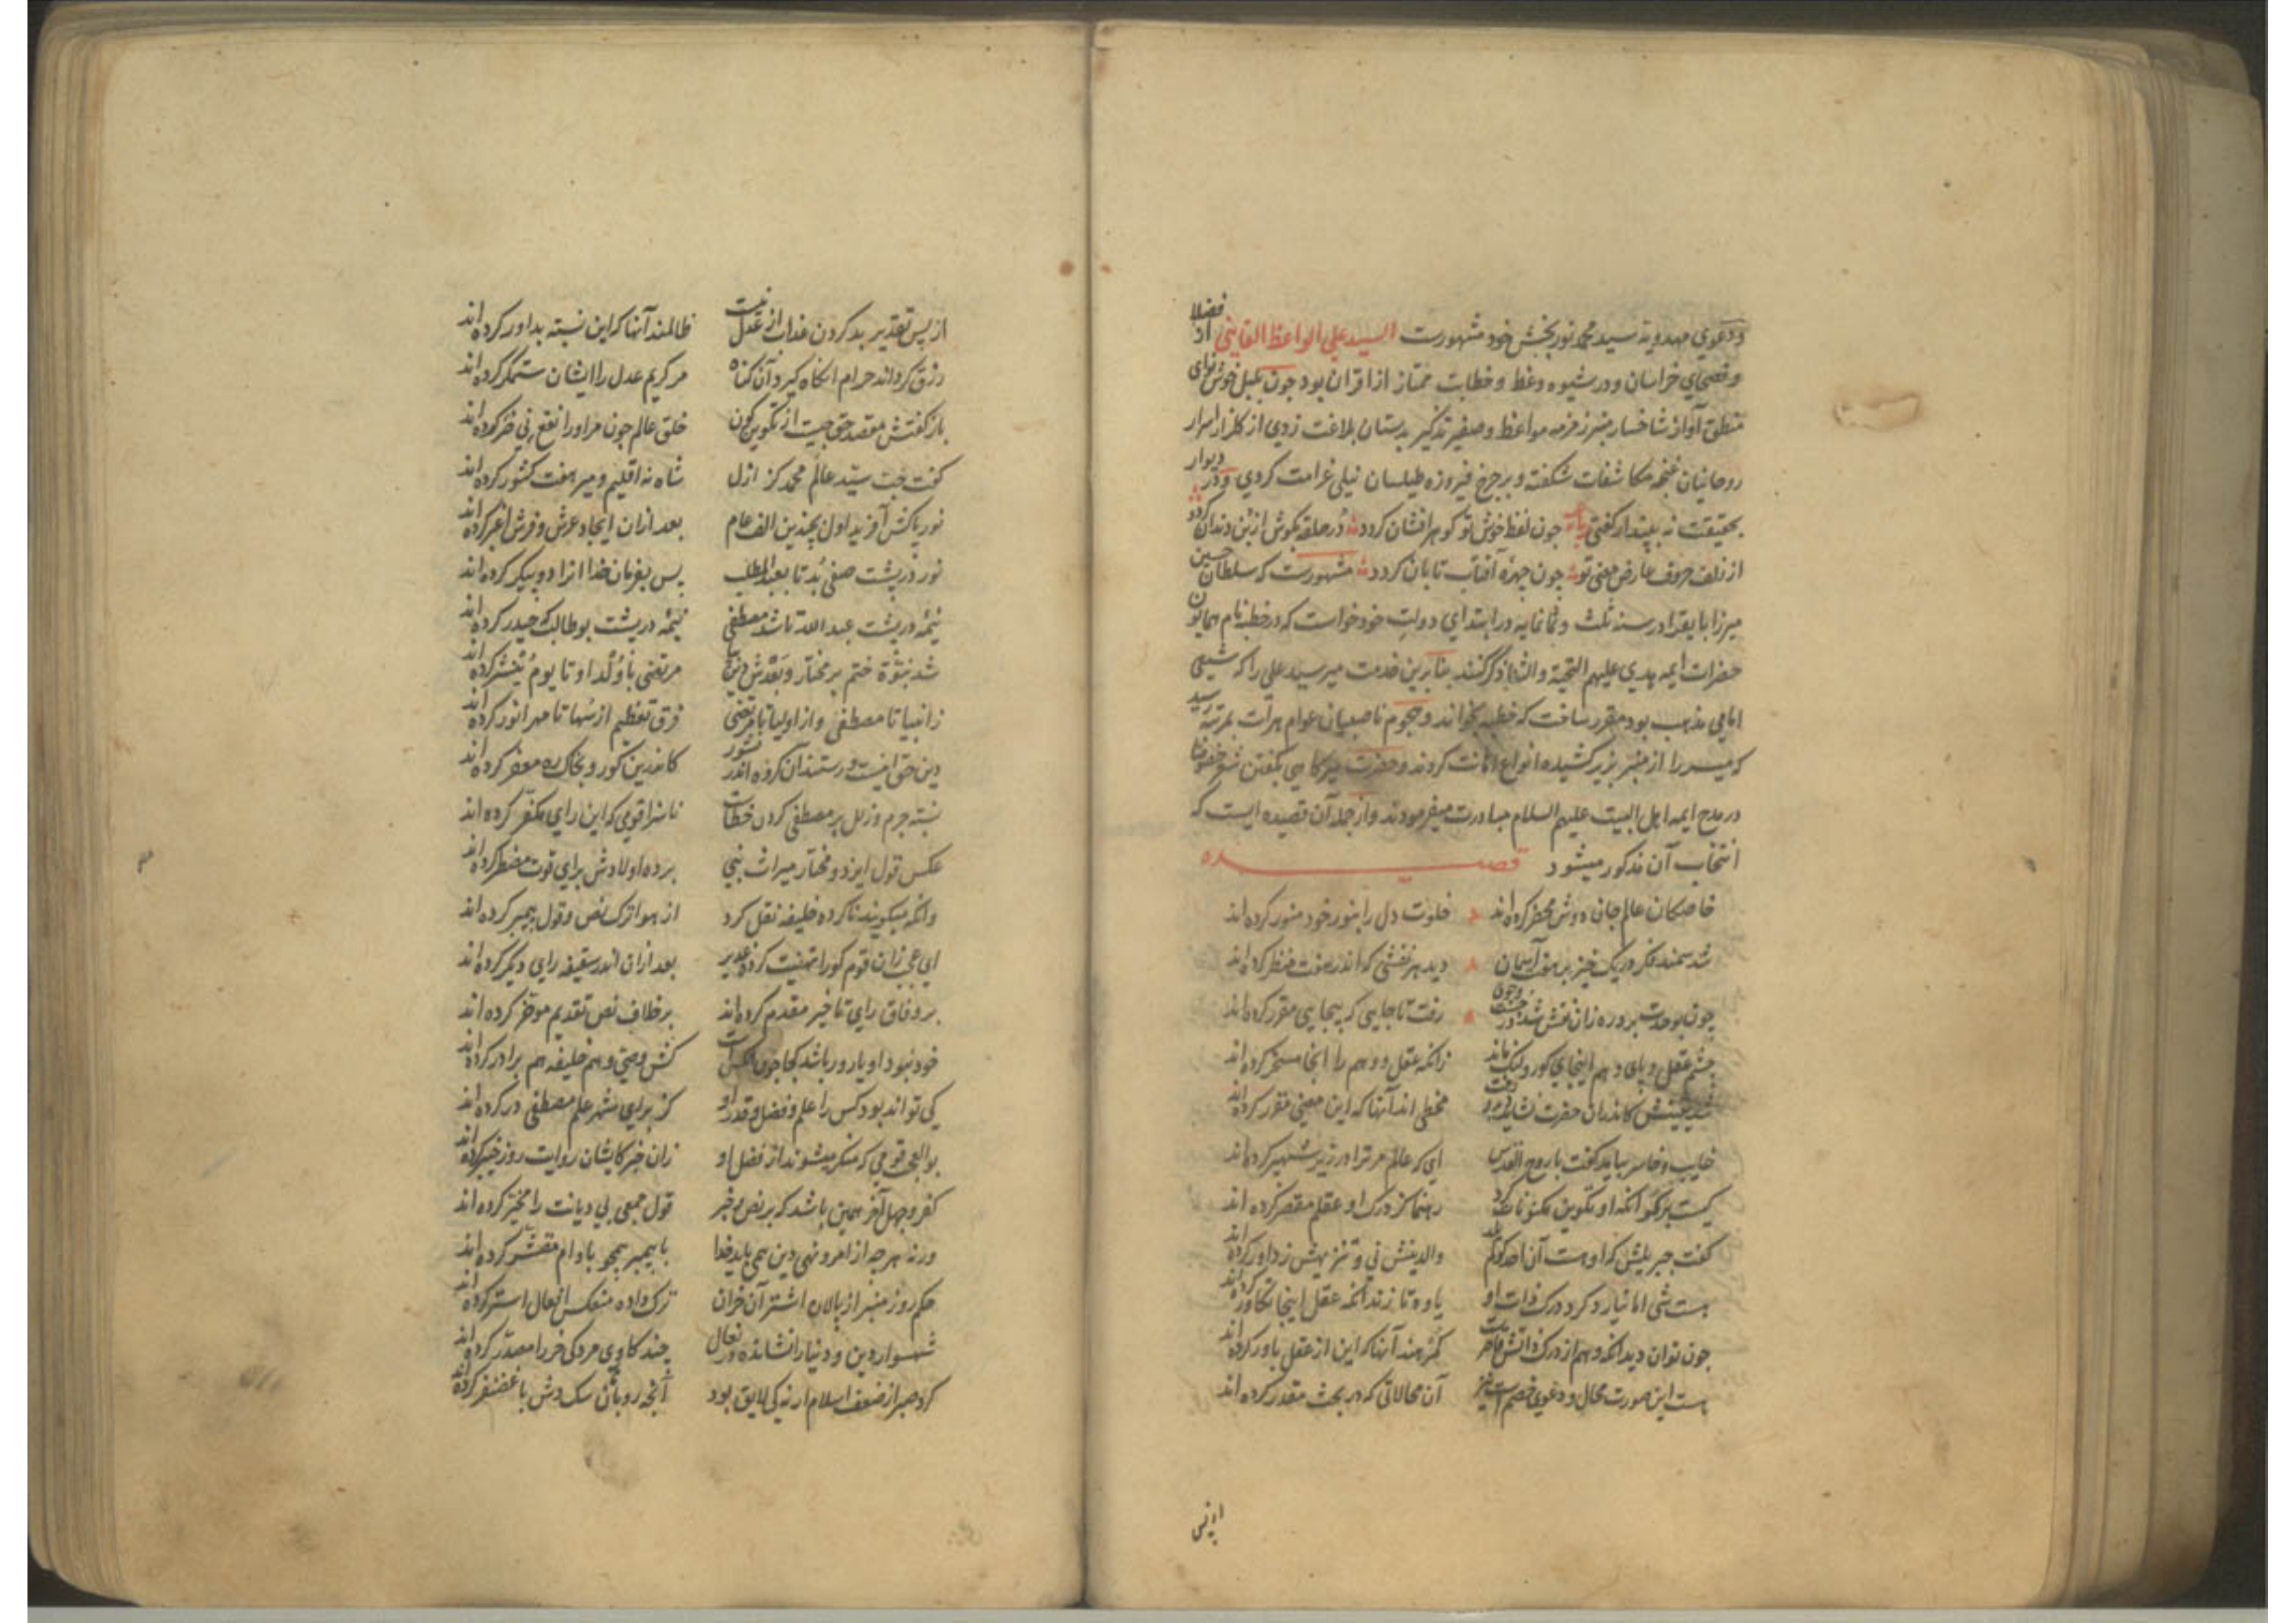 ودعوي مهدويه سيد محمد نوربخش خود مشهورست السيد علي الواعظ القايني از فضلا
وفصحاي خراسان ودر شيوه وعظ وخطابت ممتاز از اقران بود چون بلبل خوش نواي
منطق آواز شاخسار منبر زمزمه مواعظ وصفير تذكير بدستان بلاغت زدي از كلزار اسرار
روحانيان غنچه مكاشفات شكفته وبر چرخ فيروزه طيلسان نيلي غرامت كردي ودر ديوار
بحقيقت نه پيندار كفتي چون لفظ خوش تو كوهر افشان كردد در حلقه بكوش از بن دندان كردد
از زلف حروف عارض معني تو چون چهره آفتاب تابان كردد مشهورست كه سلطان حسين
ميرزا بايقرا در سنه ثلث وثمانمايه در ابتداي دولت خود خواست كه در خطبه نام همايون
حضرات ايمه هدي عليهم التحية والثنا ذكر كنند بنا برين خدمت مير سيد علي را كه شيعي
امامي مذهب بود مقرر ساخت كه خطبه بخواند وهجوم ناصبيان عوام هرات بمرتبه رسيد
كه مير را از منبر بزير كشيده انواع اهانت كردند وحضرت مير كاهي بكفتن شعر خصوصا
در مدح ايمه اهل البيت عليهم السلام مبادرت ميفرمودند واز جمله آن قصيده ايست كه
انتخاب آن مذكور ميشود قصيده
خاصكان عالم جان دوش محضر كرده اند خلوت دل را بنور خود منور كرده اند
شد سمند فكر در يك خيز بر هفت آسمان ديد هر نقشي كه اندر هفت منظر كرده اند
چون بوحدت برد ره زان نقش شد در رفت تا جايي كه بيجايي مقرر كرده اند
چشم عقل وپاي وهم اينجاي كور ولنك ماند زانكه عقل ووهم را انجا مسخر كرده اند
شد يقينش كاندران حضرت نشايد مخطي اند آنها كه اين معني مقرر كرده اند
خايب وخاسر بيامد كفت با روح القدس اي كه عالم مر ترا در زير شهپر كرده اند
كيست بركو انكه او تكوين مكنونات كرد رهنما كز درك او عقلم مقصر كرده اند
كفت جبريلش كه او هست آن احد كو لم يلد والدينش ني وتنزيهش ز داور كرده اند
هست شي اما نيارد كرد درك ذات او ياوه تازند انكه عقل اينجا تكاور كرده اند
چون توان ديد انكه وهم از درك ذاتش قاصر است كمرهند آنها كه اين از عقل باور كرده اند
هست اين صورت محال ودعوي خصم است نيز آن محالاتي كه در بحث مقدر كرده اند
از پس
از پس تقدير بد كردن عذاب از عدل نيست ظالمند آنها كه اين نسبته بداور كرده اند
رزق كرداند حرام انكاه كيرد آن كناه مر كريم عدل را ايشان ستمكر كرده اند
باز كفتش مقصد حق چيست از تكوين كون خلق عالم چون مر او را نفع ني ضر كرده اند
كفت حب سيد عالم محمد كز ازل شاه نه اقليم ومير هفت كشور كرده اند
نور پاكش آفريد اول بچندين الف عام بعد ازان ايجاد عرش وفرش اغبر كرده اند
نور در پشت صفي بد تا بعبد المطلب پس بفرمان خدا انرا دو پيكر كرده اند
نيمه در پشت عبد الله تا شد مصطفي نيمه در پشت بو طالب كه حيدر كرده اند
شد نبوة ختم بر مختار وبعدش دين مرتضي با ولد او تا يوم يحشر كرده اند
ز انبيا تا مصطفي واز اوليا تا مرتضي فرق تعظيم از سها تا مهر انور كرده اند
دين حق اينست ورستند آن كروه اندر نشور كاندرين كور وبخاك ره معفر كرده اند
نسبته جرم وزلل بر مصطفي كردن خطاست ناسزا قومي كه اين راي مكفر كرده اند
عكس قول ايزد ومختار ميراث نبي برده اولادش براي قوت مضطر كرده اند
وانكه ميكويند ناكرده خليفه نقل كرد از هوا ترك نص وقول پيمبر كرده اند
اي عجب زان قوم كو را تهنيت كرده غدير بعد ازان اندر سقيفه راي ديكر كرده اند
بر وفاق راي تاخير مقدم كرده اند بر خلاف نص تقديم موخر كرده اند
خود نبود او ياور باشد كجا چون كس است كش وصي وهم خليفه هم برادر كرده اند
كي تواند بود كس را علم وفضل وقدر او كز براي شهر علم مصطفي در كرده اند
بو العجب قومي كه منكر ميشوند از فضل او زان خبر كايشان روايت روز خيبر كرده اند
كفر وجهل آخر همين باشد كه بر نص وخبر قول جمعي بي ديانت را مخير كرده اند
ورنه هر چه از امر ونهي دين همي بايد خدا با پيمبر همچو بادام مقشر كرده اند
حكم روز منبر از پالان اشتر آن خران ترك داده منعكس افعال استر كرده اند
شهسوار دين ودنيا را نشانده در نعال چند كاوي مردكي خر را مصدر كرده اند
كرد صبر از ضعف اسلام ار نه كي لايق بود آنچه روباهان سك دش با غضنفر كرده اند